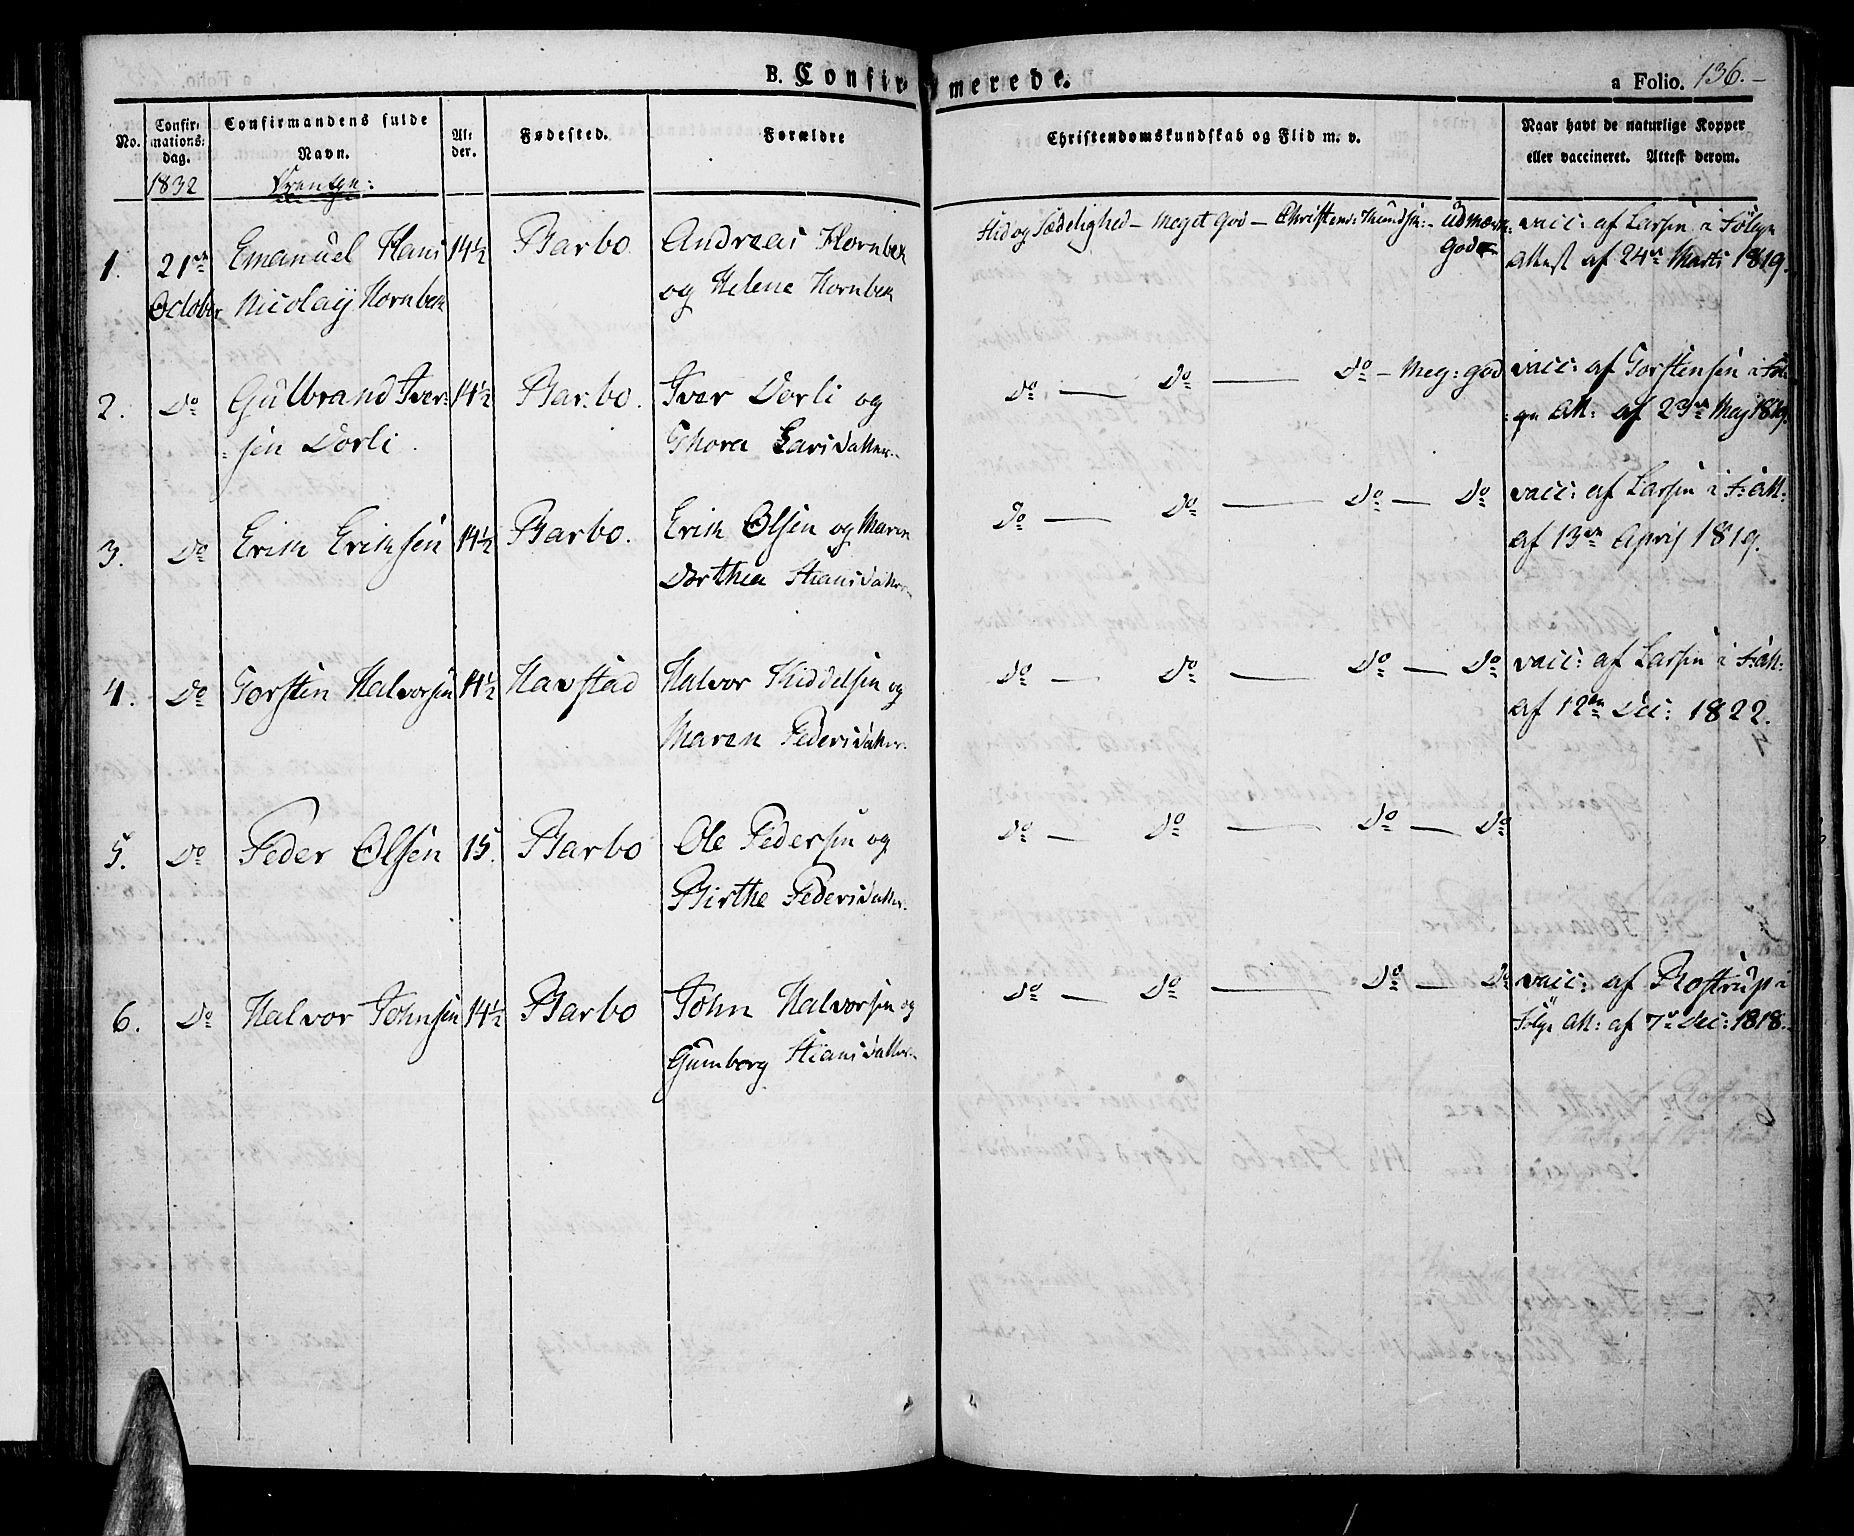 B. Confirmerede.
a Folio. 136.-
No.
Confirmationsdag.
Confirmandens fulde Navn.
Alder.
Fødested.
Forældre
Christendomskundskab og Flid m. v.
Naar havt de naturlige Kopper
eller vaccineret. Attest derom.
1832
Drenge:
1. 21de Emanuel Hans 14½ Barbo Andreas Hornbek Flid og Sædelighed - Meget God - Christend: Kundsk: - Udmærk: vacc: af Larsen i Følge
October Nicolaÿ Hornbek og Helene Hornbek God Attest af 24de Marts 1819.
2. Do Gulbrand Iver- 14½ Barbo. Iver Dorli og Do — Do — Do - Meg: god vacc: af Torstensen i Føl-
sen Dorli. Thora Larsdatter ge Att: af 23de Maj 1819.
3. Do Erik Eriksen 14½ Barbo. Erik Olsen og Maren Do — Do — Do — Do vacc: af Larsen i F: Att:
Dorthea Stiansdatter af 13de April 1819.
4. Do Torsten Halvorsen 14½ Havstad Halvor Kiddelsen og Do — Do — Do — Do vacc: af Larsen i F: Att:
Maren Pedersdatter af 12te Dec: 1822.
5. Do Peder Olsen 15. Barbo Ole Pedersen og Do — Do — Do — Do
Birthe Pedersdatter
6. Do Halvor Johnsen 14½ Barbo John Halvorsen og Do — Do — Do — Do vacc: af Rostrup i
Gumborg Stiansdatter Følge Att: af 7de Dec: 1818.